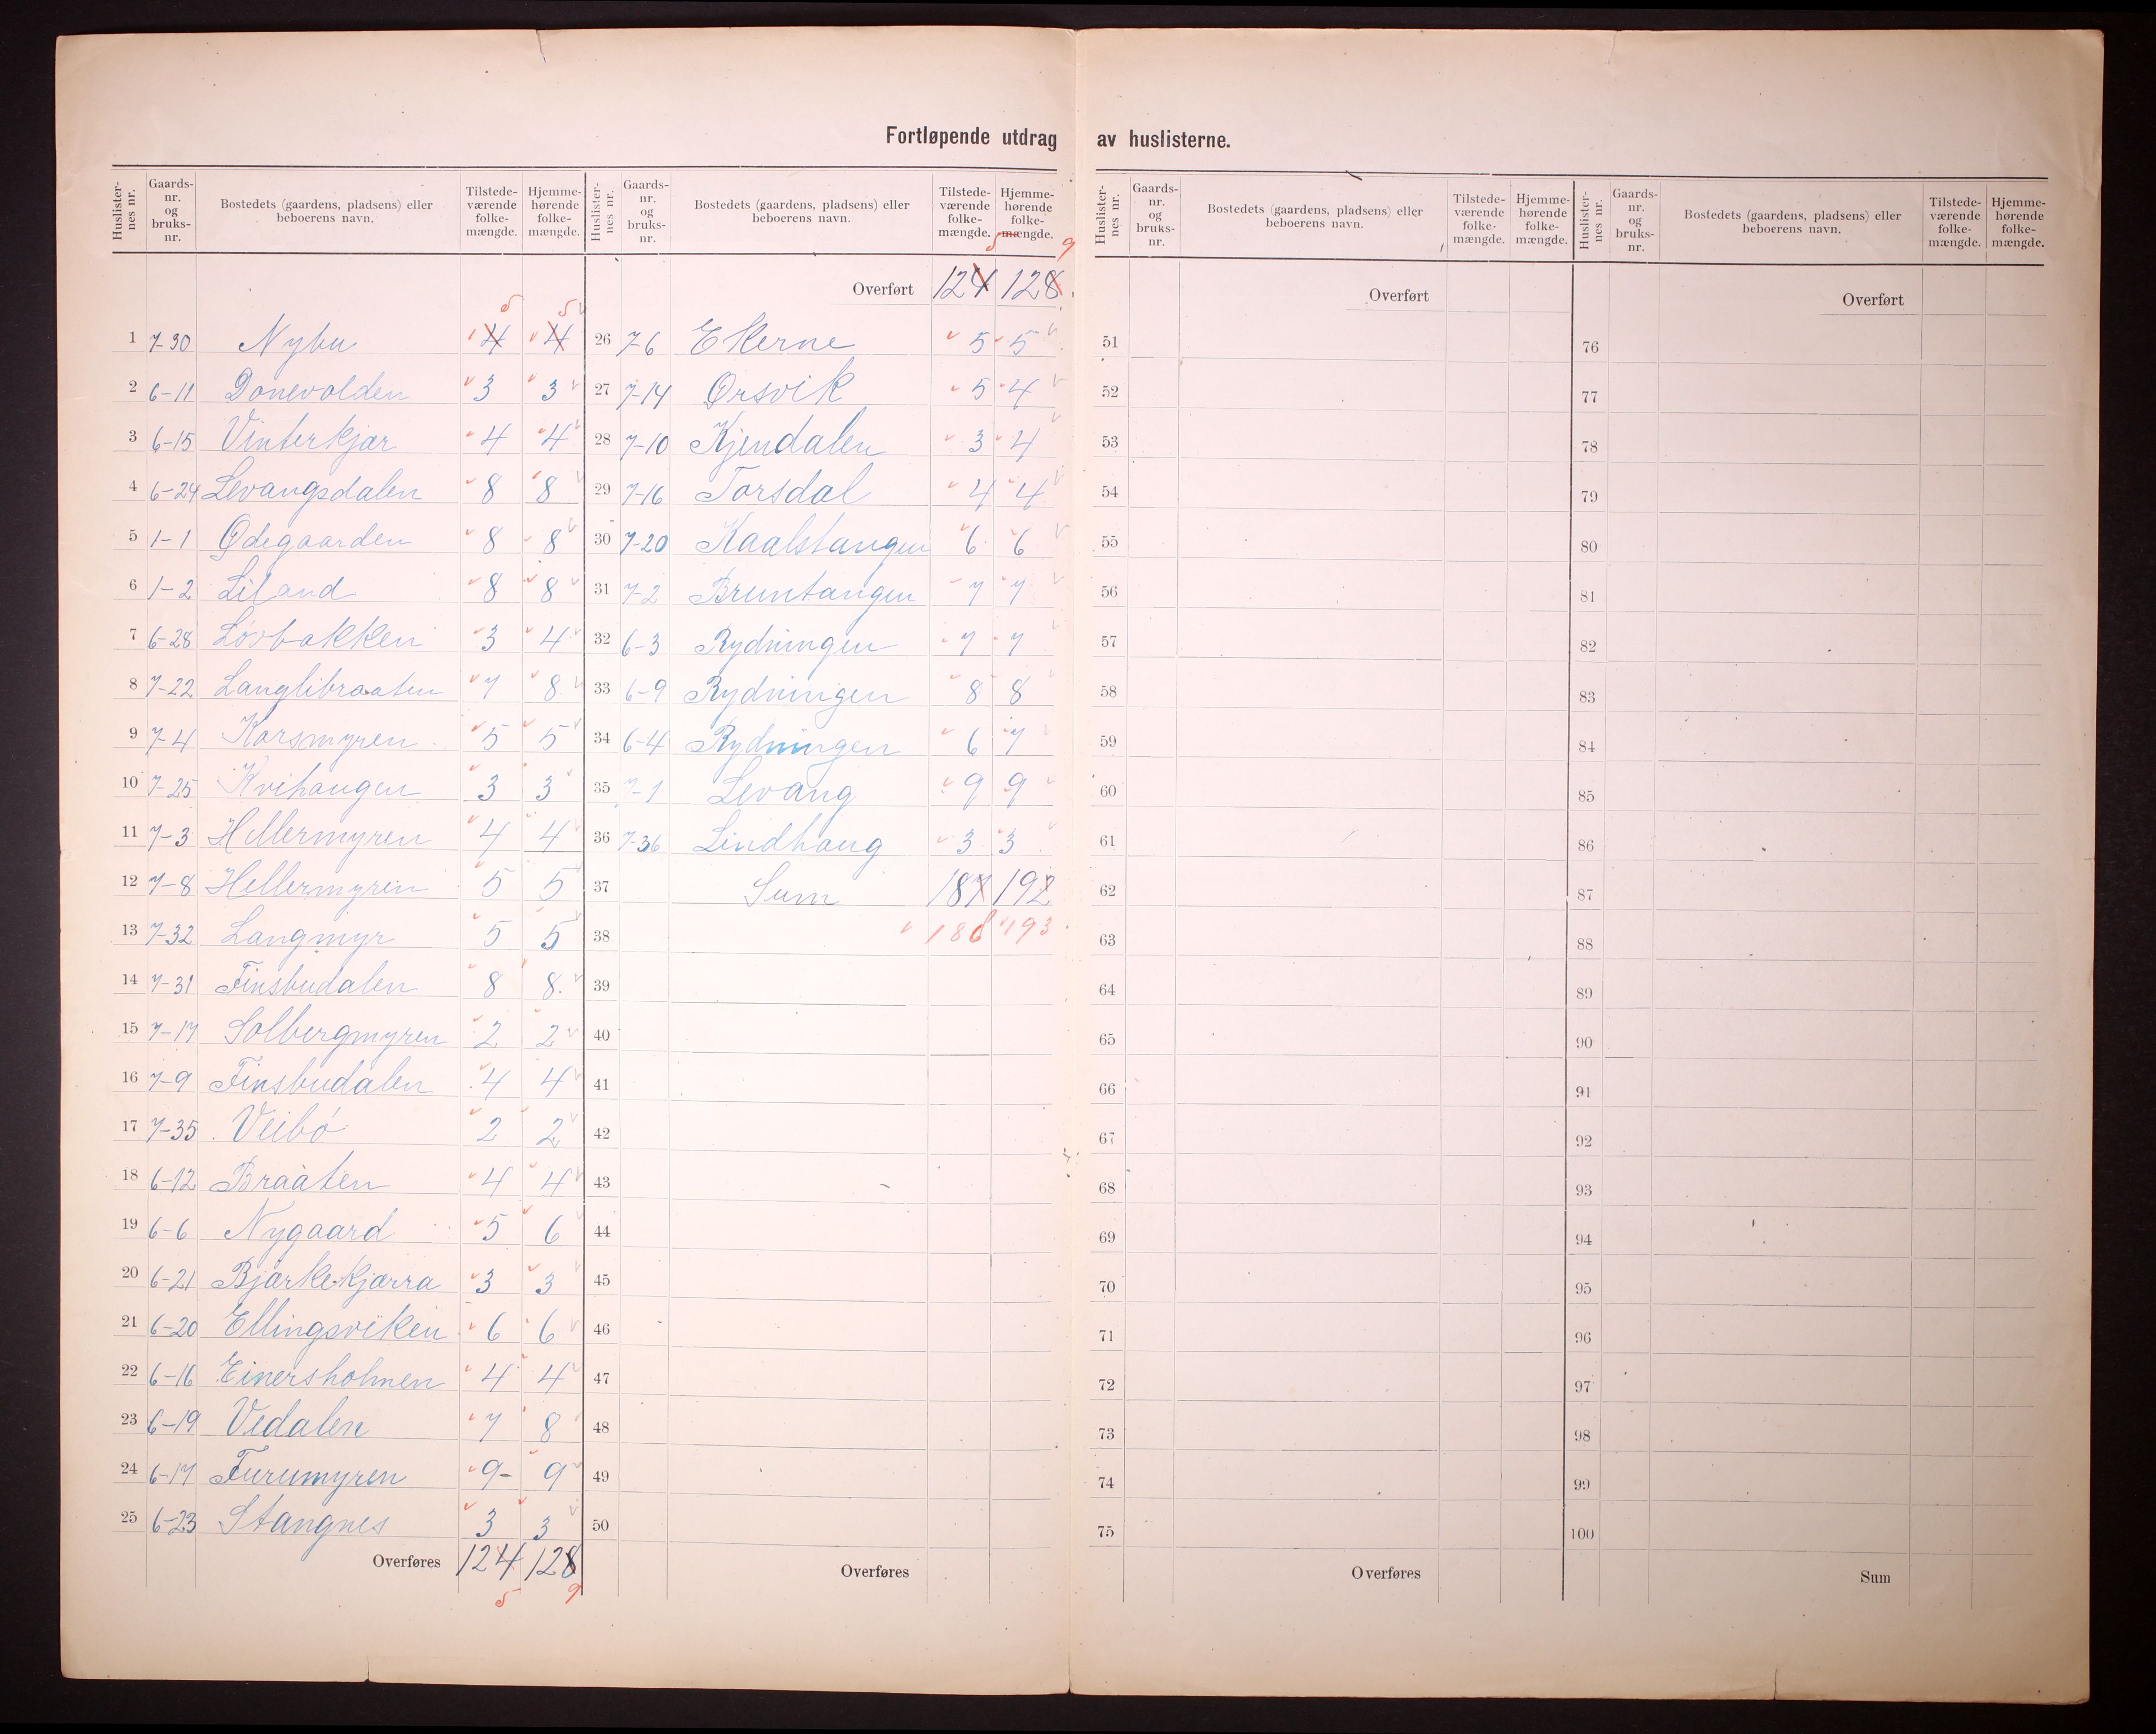 Fortløpende utdrag av huslisterne.
Huslisternes nr. Gaards-nr. og bruks-nr. Bostedets (gaardens, pladsens) eller beboerens navn. Tilstedeværende folkemængde. Hjemmehørende folkemængde.
1 7-30 Nybu 4 4 5 5
2 6-11 Donevolden 3 3
3 6-15 Vinterkjær 4 4
4 6-24 Levangsdalen 8 8
5 1-1 Ødegaarden 8 8
6 1-2 Liland 8 8
7 6-28 Løvbakken 3 4
8 7-22 Langlibraaten 7 8
9 7-4 Korsmyren 5 5
10 7-25 Kvihaugen 3 3
11 7-3 Hellermyren 4 4
12 7-8 Hellermyren 5 5
13 7-32 Langmyr 5 5
14 7-31 Finsbudalen 8 8.
15 7-17 Solbergmyren 2 2
16 7-9 Finsbudalen 4 4
17 7-35 Veibó 2 2
18 6-12 Braaten 4 4
19 6-6 Nygaard 5 6
20 6-21 Bjørkekjærra 3 3
21 6-20 Ellingsviken 6 6
22 6-16 Einersholmen 4 4
23 6-19 Vedalen 7 8
24 6-17 Furumyren 9- 9
25 6-23 Stangnes 3 3
Overføres 124 128
5 9
Huslisternes nr. Gaards-nr. og bruks-nr. Bostedets (gaardens, pladsens) eller beboerens navn. Tilstedeværende folkemængde. Hjemmehørende folkemængde.
5 9
Overført 124 128
26 7-6 Ekerne 5 5
27 7-14 Ørsvik 5 4
28 7-10 Kjendalen 3 4
29 7-16 Torsdal 4 4
30 7-20 Kaalstangen 6 6
31 7-2 Bruntangen 7 7
32 6-3 Rydningen 7 7
33 6-9 Rydningen 8 8
34 6-4 Rydningen 6 7
35 7-1 Levang 9 9
36 7-36 Lindhaug 3 3
37 Sum 187 192
38 188 193
39
40
41
42
43
44
45
46
47
48
49
50
Overføres
Huslisternes nr. Gaards-nr. og bruks-nr. Bostedets (gaardens, pladsens) eller beboerens navn. Tilstedeværende folkemængde. Hjemmehørende folkemængde.
Overført
51
52
53
54
55
56
57
58
59
60
61
62
63
64
65
66
67
68
69
70
71
72
73
74
75
Overføres
Huslisternes nr. Gaards-nr. og bruks-nr. Bostedets (gaardens, pladsens) eller beboerens navn. Tilstedeværende folkemængde. Hjemmehørende folkemængde.
Overført
76
77
78
79
80
81
82
83
84
85
86
87
88
89
90
91
92
93
94
95
96
97
98
99
100
Sum